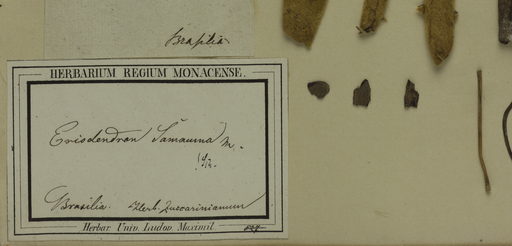 Brasilia
HERBARIUM REGIUM MONACENSE.
Eriodendron Samauma M.
Brasilia. Herb. Zuccarinianum
Herbar. Univ. Ludov. Maximil.